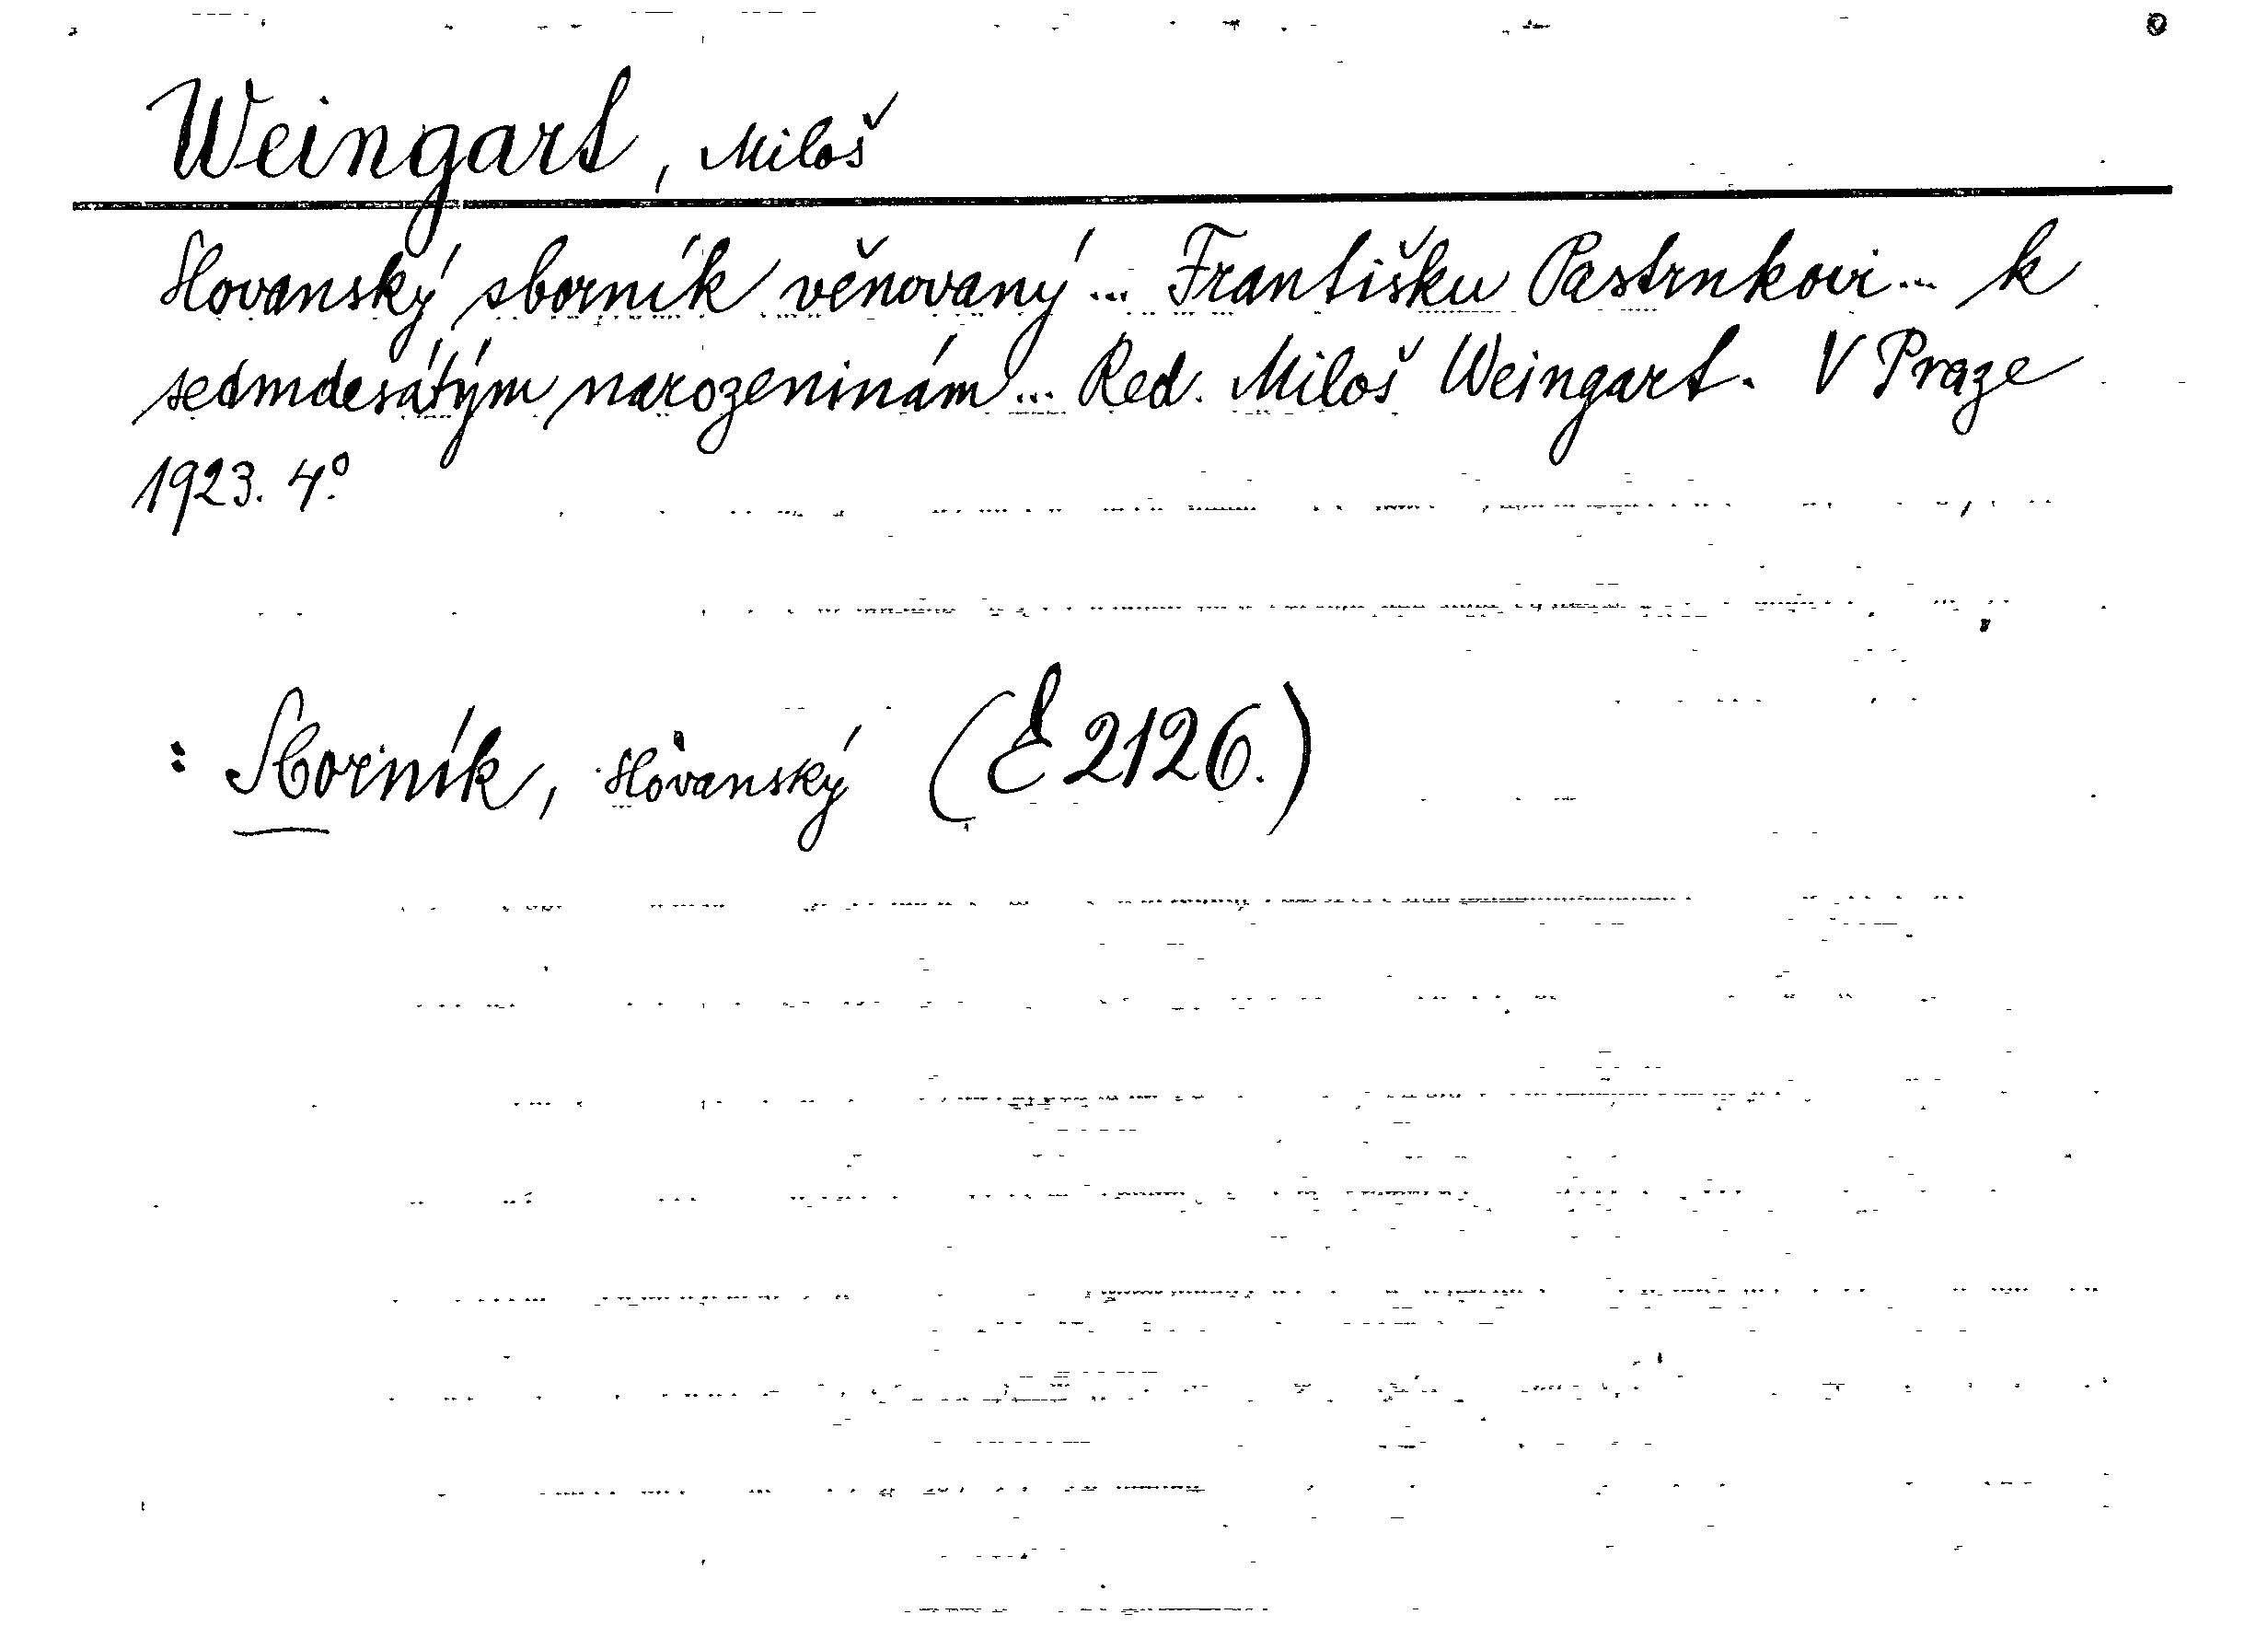 Weingart, Miloš
Slovanský sborník věnovaný... Františku Pastrnkovi... k
sedmdesátým narozeninám... Red. Miloš Weingart. V Praze
1923. 4°.
: Sborník, slovanský (E 2126.)